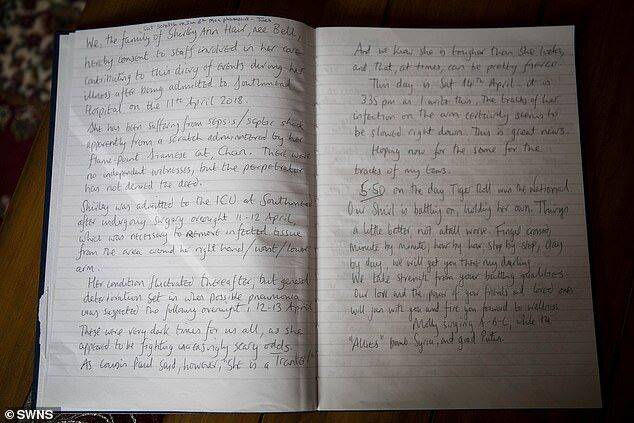 We, the family of Shirley Ann Hair, nee Bell,
hereby consent to staff involved in her care
contributing to this diary of events during her
illness after being admitted to Southmead
Hospital on the 11th April 2018.
She has been suffering from sepsis/septic shock
apparently from a scratch administered by her
flame-point Siamese cat, Chan. There were
no independent witnesses, but the perpetrator
has not denied the deed.
Shirley was admitted to the ICU at Southmead
after undergoing surgery overnight 11-12 April,
which was necessary to remove infected tissue
from the area around her right hand/wrist/lower
arm.
Her condition fluctuated thereafter, but general
deterioration set in when possible pneumonia
was suspected the following overnight, 12-13 April
These were very dark times for us all, as she
appeared to be fighting increasingly scary odds.
As cousin Paul said, however, "She is a
And we know she is tougher than she looks,
and that, at times, can be pretty fierce.
This day is Sat 14th April. it is
335 pm as I write this. The tracks of her
infection on the arm certainly seems to
be slowed right down. This is great news.
Hoping now for the same for the
tracks of my tears.
5.50 on the day Tiger Roll won the National.
Our Shirl is battling on, holding her own. Things
a little better, not atall worse. Fingers crossed,
Minute by minute, hour by hour, step by step, day
by day, we will get you there my darling.
We take strength from your battling
Our love and the power of your friends and loved ones
will join with you and fire you forward to wellness.
Molly singing A-B-C, while the
"Allies" bomb Syria, and Putin.
© SWNS